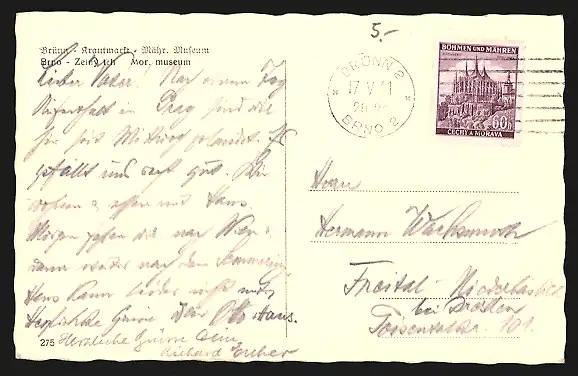 5.-
Brünn - Krautmarkt - Mähr. Museum
Brno - Zelný trh Mor. museum
BRÜNN 2
17 V 41
BRNO 2
BÖHMEN UND MÄHREN
60h
ČECHY A MORAVA
Lieber Vater! Nach einem Tag
Aufenthalt in Prag sind wir
hier seit Mittag gelandet. Es
gefällt uns sehr gut. Wir
wohnen u. essen mit Hans.
Morgen gehen wir nach Wien,
dann weiter nach dem Semmering
Hans kann leider nicht mit.
Herzliche Grüsse Dein Otto Hans.
Herzliche Grüsse Dein
Richard
Herrn
Hermann Wachsmuth
Freital - Niederhäslich
bei Dresden
101.
275